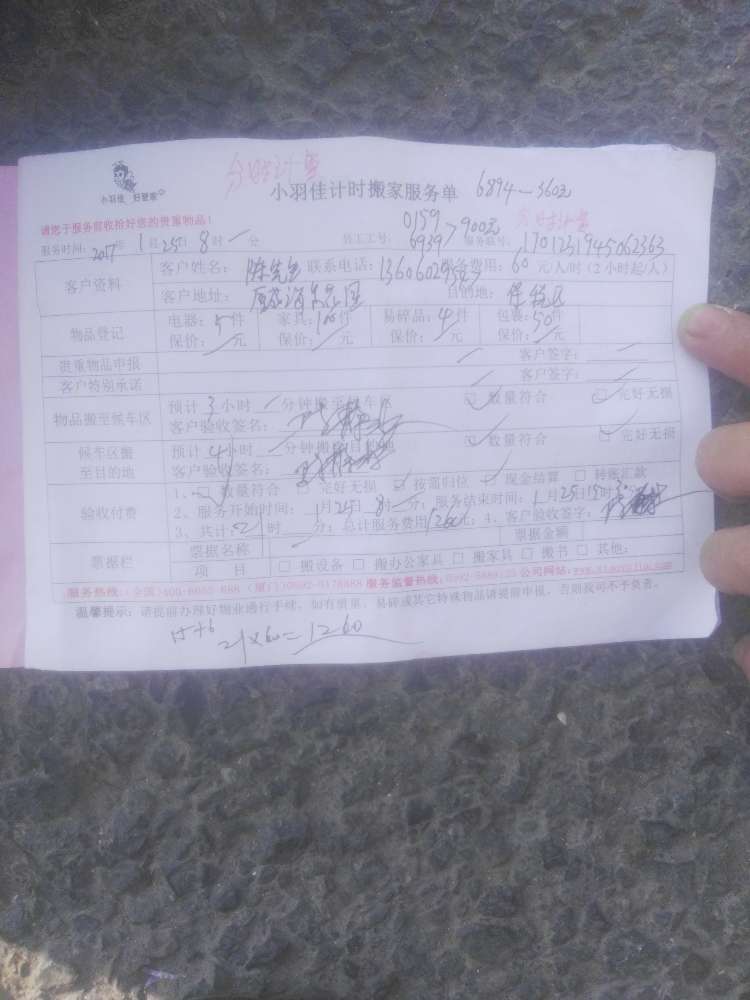 小羽佳 好管家
小羽佳计时搬家服务单 6894—360元
请您于服务前收拾好您的贵重物品！ 0159 > 900元
服务时间：2017年1月25日8时一分 员工工号： 6939 服务账号：1701231945062363
客户资料 客户姓名：陈先生 联系电话： 服务费用：60元/人/时（2小时起/人）
客户地址： 目的地：保税区
物品登记 电器：5件 家具：100件 易碎品：4件 包装：50件
保价：/元 保价：/元 保价：/元 保价：/元
贵重物品申报 客户签字：
客户特别承诺 客户签字：
物品搬至候车区 预计3小时/分钟搬至候车区 ☑数量符合 ☑完好无损
客户验收签名：
候车区搬至目的地 预计4小时 分钟搬至目的地 ☑数量符合 ☑完好无损
客户验收签名：
验收付费 1、☑数量符合 ☑完好无损 ☑按需归位 ☑现金结算 □转账汇款
2、服务开始时间：1月25日8时/分；服务结束时间：1月25日15时
3、共计：21时 分；总计服务费用1260元；4、客户验收签字：
票据栏 票据名称 票据金额
项目 □搬设备 □搬办公家具 □搬家具 □搬书 □其他：
服务热线： 服务监督热线： 公司网站：
温馨提示：请提前办理好物业通行手续，如有贵重、易碎或其它特殊物品请提前申报，否则我司不予负责。
15+6
21×60=1260